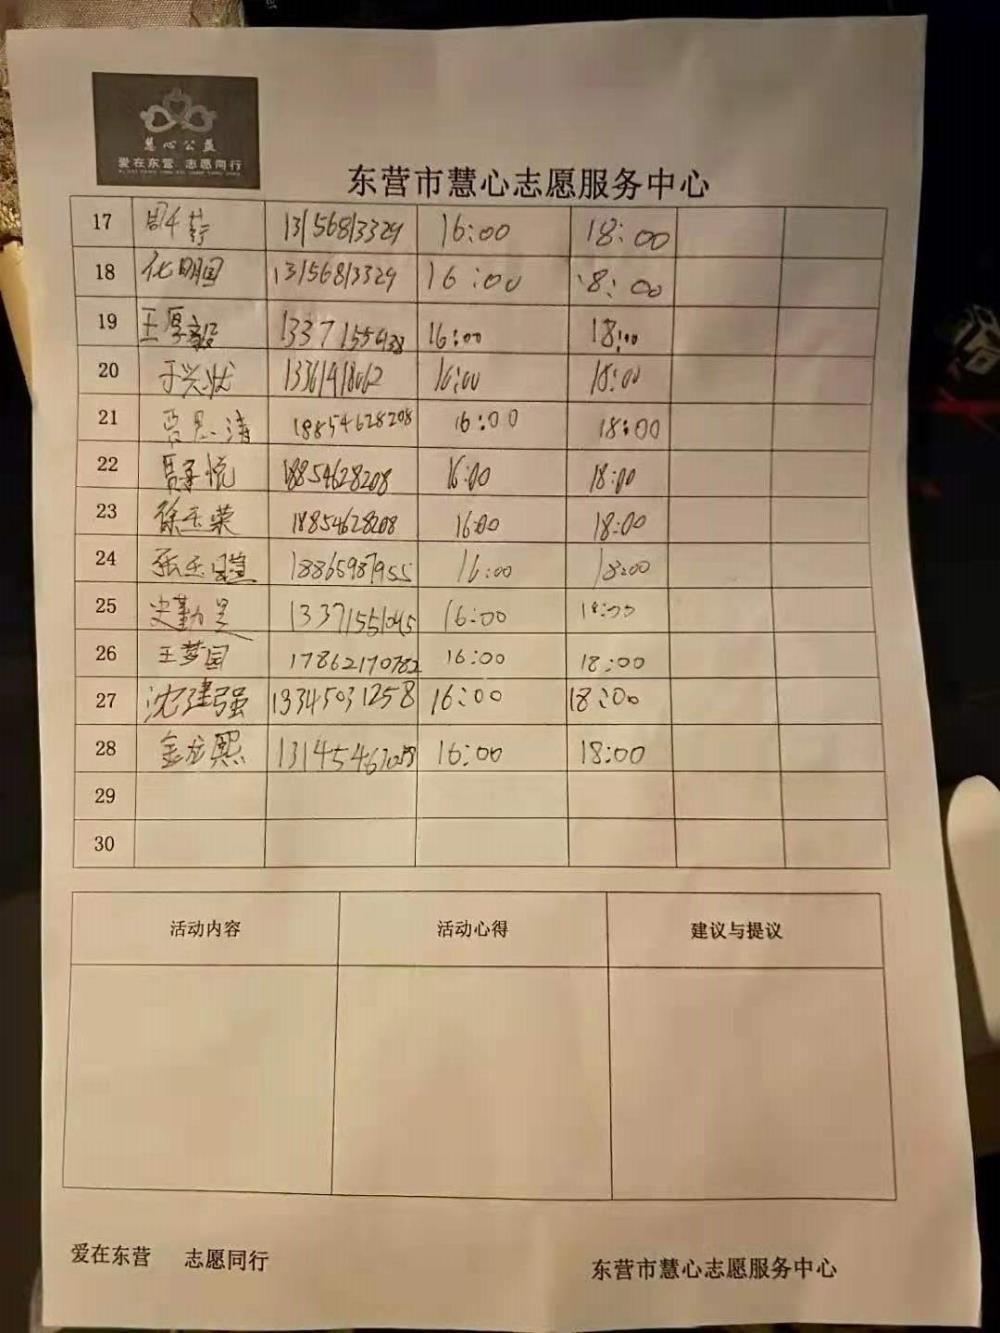 慧心公益
爱在东营 志愿同行
东营市慧心志愿服务中心
17 13156813329 16:00 18:00
18 化明国 13156813329 16:00 18:00
19 王厚毅 16:00 18:00
20 16:00 18:00
21 18854628208 16:00 18:00
22 18854628208 16:00 18:00
23 徐玉荣 18854628208 16:00 18:00
24 18865987955 16:00 18:00
25 史勤昊 16:00 18:00
26 王梦园 17862170782 16:00 18:00
27 沈建强 13345031258 16:00 18:00
28 金龙熙 16:00 18:00
29
30
活动内容 活动心得 建议与提议
爱在东营 志愿同行 东营市慧心志愿服务中心